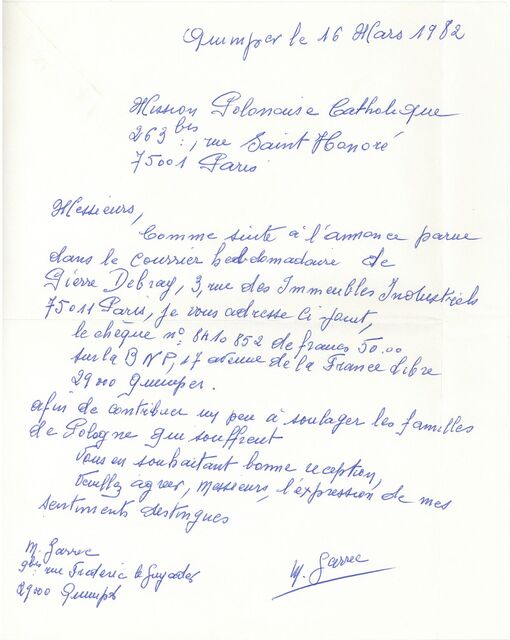 Quimper le 16 Mars 1982
Mission Polonaise Catholique
263 bis, rue Saint Honoré
75001 Paris
Messieurs,
Comme suite à l'annonce parue
dans le courrier hebdomadaire de
Pierre Debray, 3, rue des Immeubles Industriels
75011 Paris, je vous adresse ci joint,
le chèque n° 8410852 de francs 50.00
sur la BNP, 17 avenue de la France Libre
29000 Quimper.
afin de contribuer un peu à soulager les familles
de Pologne qui souffrent
Vous en souhaitant bonne reception,
Veuillez agreer, Messieurs, l'expression de mes
sentiments distingues
M. Garrec
9 bis rue Frederic le Guyader
29000 Quimper
M. Garrec